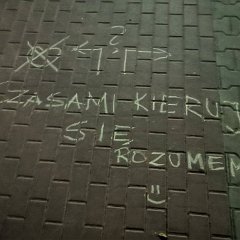 ?
ZASAMI KIERUJ
SIĘ
ROZUMEM